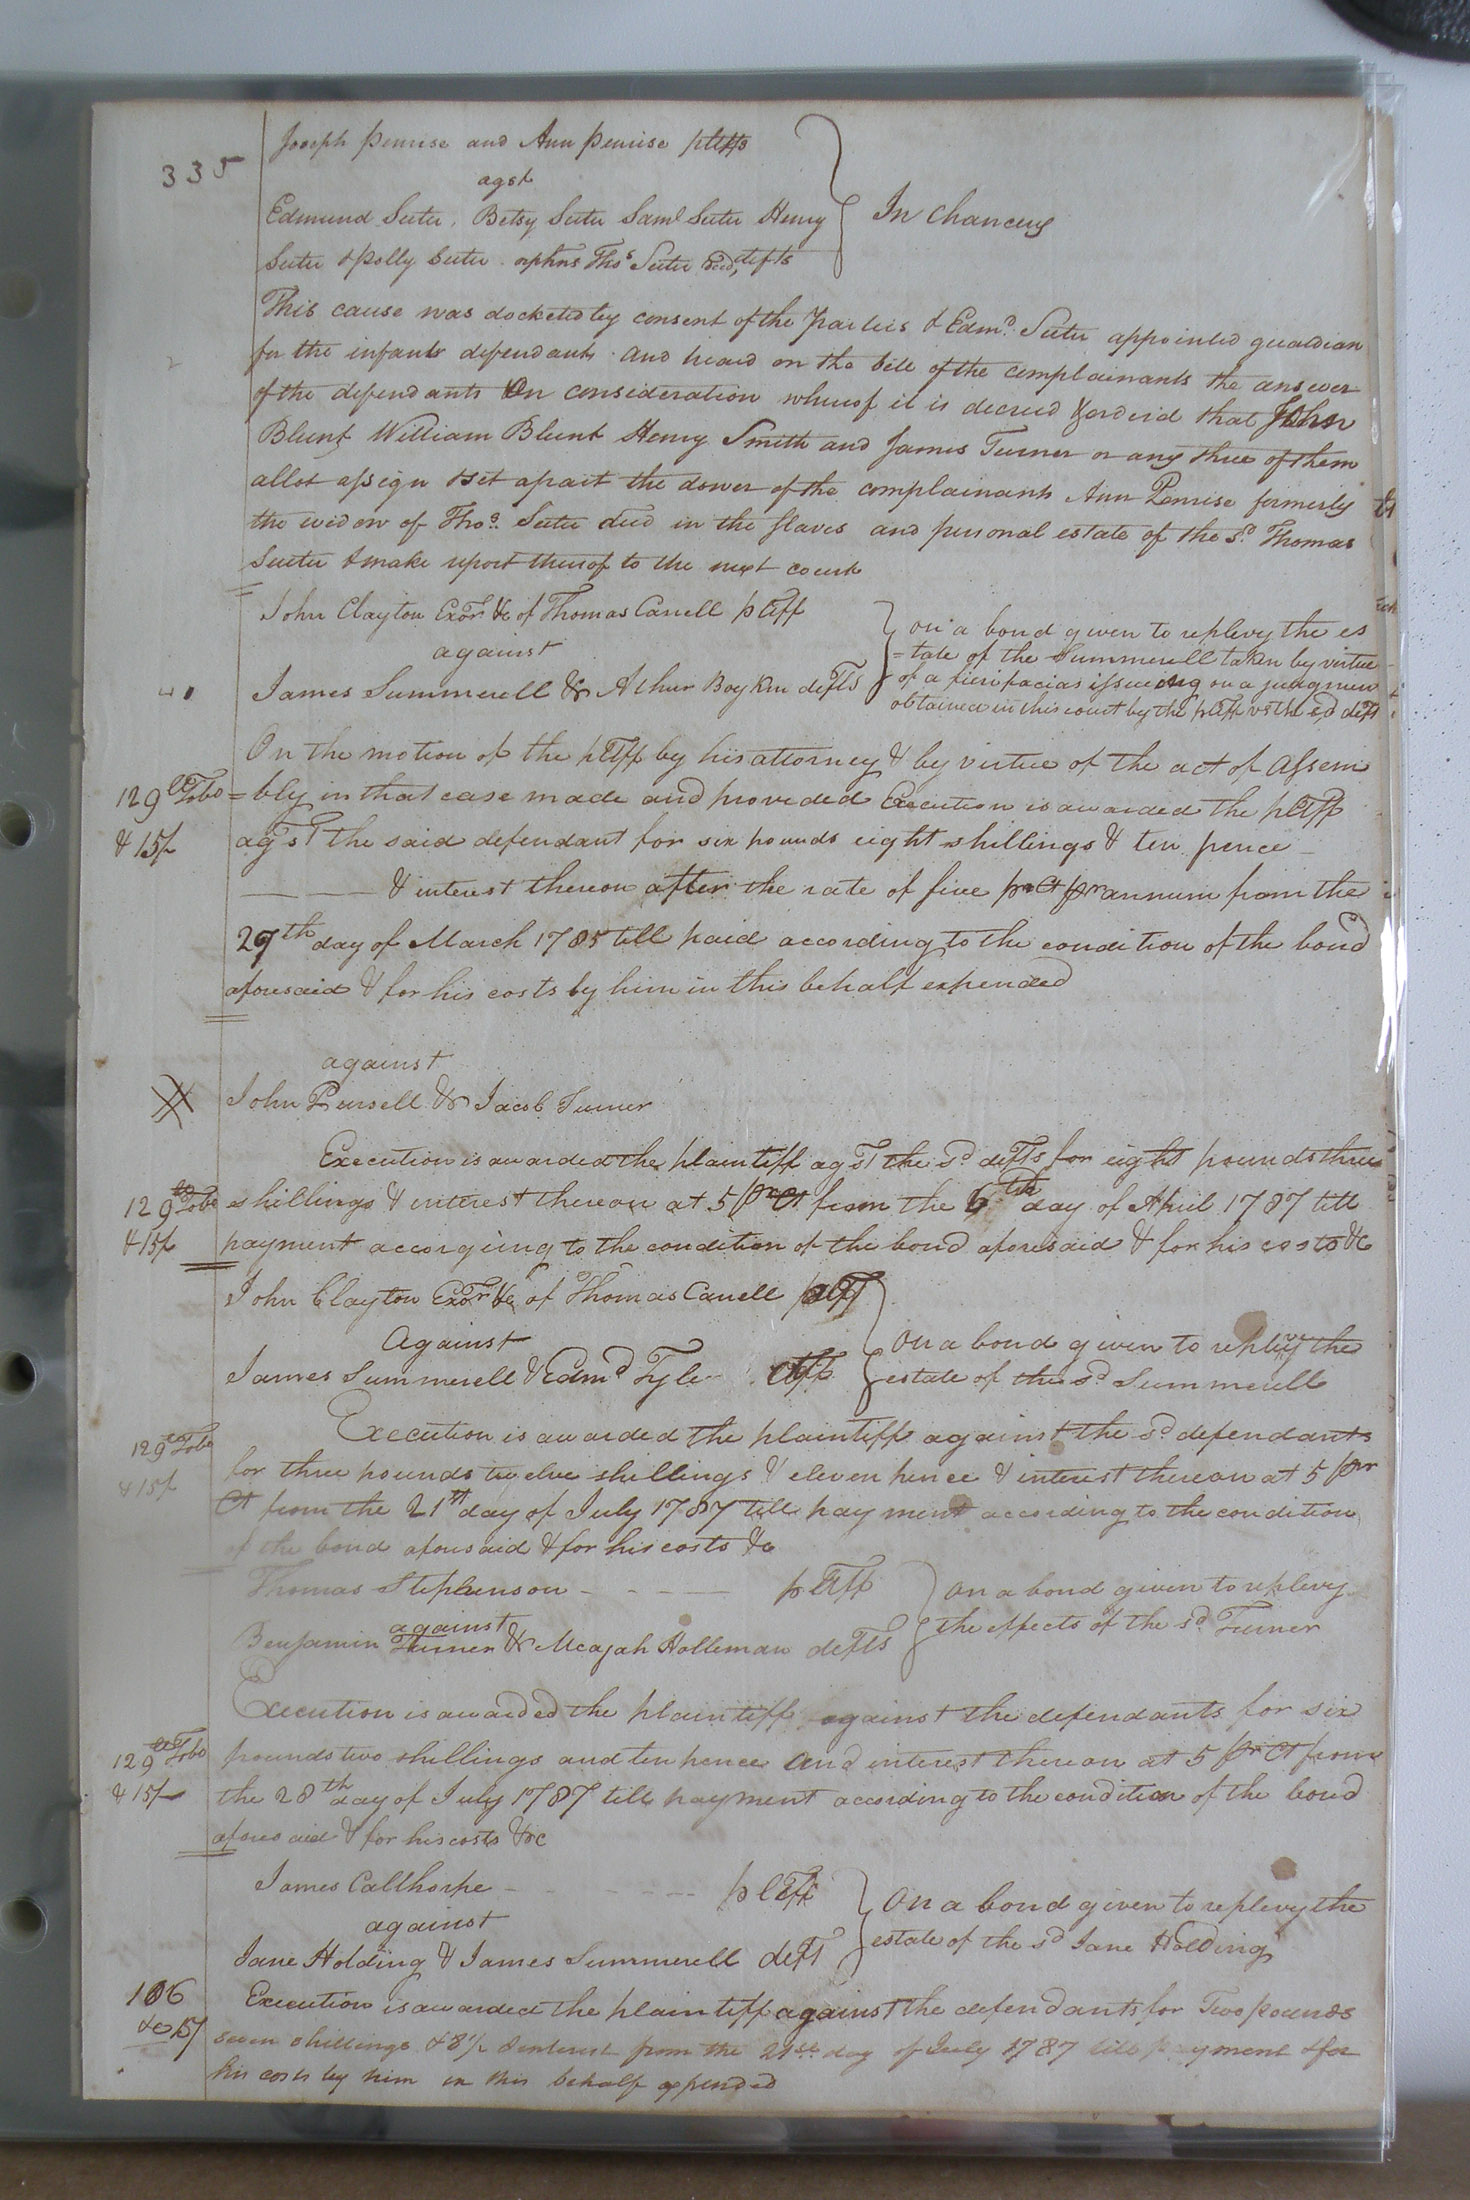 335
Joseph Penrise and Ann Penrise pltffs
agst
Edmund Suter, Betsy Suter Saml Suter Henry
Suter & Polly Suter orphns Thos Suter decd, defts
In Chancery
This cause was docketed by consent of the Parties & Edmd. Suter appointed guardian
for the infants defendants and heard on the bill of the complainants the answer
of the defendants On consideration whereof it is decreed & orderd that John
Blunt, William Blunt Henry Smith and James Turner or any three of them
allot assign & set apart the dower of the complainants Ann Penrise formerly
the widow of Thos. Suter decd in the slaves and personal estate of the sd. Thomas
Suter & make report thereof to the next court
John Clayton Exor &c of Thomas Carrell pltff
against
James Summerell & Arthur Boykin defts
on a bond given to replevy the es
=tate of the Summerell taken by virtue
of a fieri facias issueing on a judgmen
obtained in this court by the pltff vs the sd deft
On the motion of the pltff by his attorney & by virtue of the act of Assem
129 lb Tobo
& 15/
=bly in that case made and provided Execution is awarded the pltff
agst the said defendant for six pounds eight shillings & ten pence
& interest thereon after the rate of five pr Ct pr annum from the
29th day of March 1785 till paid according to the condition of the bond
aforesaid & for his costs by him in this behalf expended
against
John Pursell & Jacob Turner
Execution is awarded the plaintiff agst the sd defts for eight pounds three
129 lb Tobo
& 15/
shillings & interest thereon at 5 pr Ct from the 6th day of April 1787 till
payment accorging to the condition of the bond aforesaid & for his costs &c
John Clayton Exor &c of Thomas Carrell pltff
Against
James Summerell & Edmd Tyler
On a bond given to replevy the
estate of the sd Summerell
Execution is awarded the plaintiff against the sd defendants
129 lb Tobo
& 15/
for three pounds twelve shillings & eleven pence & interest thereon at 5 pr
Ct from the 21st day of July 1787 till payment according to the condition
of the bond aforesaid & for his costs &c
Thomas Stephenson - - - pltff
against
Benjamin Turner & Mcajah Holleman defts
On a bond given to replevy
the effects of the sd Turner
Execution is awarded the plaintiff against the defendants for six
129 lb Tobo
& 15/
pounds two shillings and ten pence and interest thereon at 5 pr Ct from
the 28th day of July 1787 till payment according to the condition of the bond
aforesaid & for his costs &c
James Callhorpe - - - - pltff
against
Jane Holding & James Summerell deft
On a bond given to replevy the
estate of the sd Jane Holding
106
& 15/
Execution is awarded the plaintiff against the defendants for Two pounds
seven shillings & 8½ & interest from the 21st day of July 1787 till payment & for
his costs by him in this behalf expended